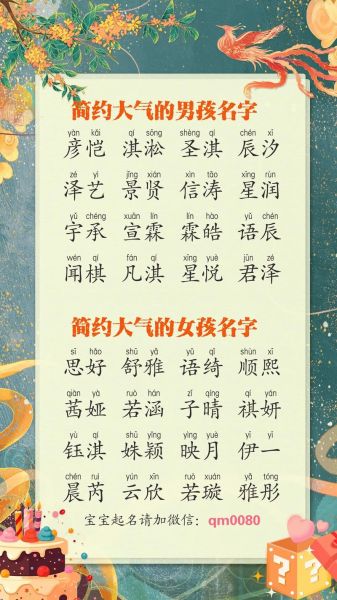 简约大气的男孩名字
yàn kǎi qí sōng shèng qí chén xī
彦恺 淇淞 圣淇 辰汐
zé yì jǐng xián xìn tāo xīng rùn
泽艺 景贤 信涛 星润
yǔ chéng xuān lín lín hào yǔ chén
宇承 宣霖 霖皓 语辰
wén qí fán qí xīng yuè jūn zé
闻棋 凡淇 星悦 君泽
简约大气的女孩名字
sī hǎo shū yǎ yǔ qǐ shùn xī
思好 舒雅 语绮 顺熙
qiàn yà ruò hán zǐ qíng qí yán
茜娅 若涵 子晴 祺妍
yù qí shū yǐng yìng yuè yī yī
钰淇 姝颖 映月 伊一
chén ruì yún xīn ruò xuán yǎ tóng
晨芮 云欣 若璇 雅彤
宝宝起名请加微信：qm0080